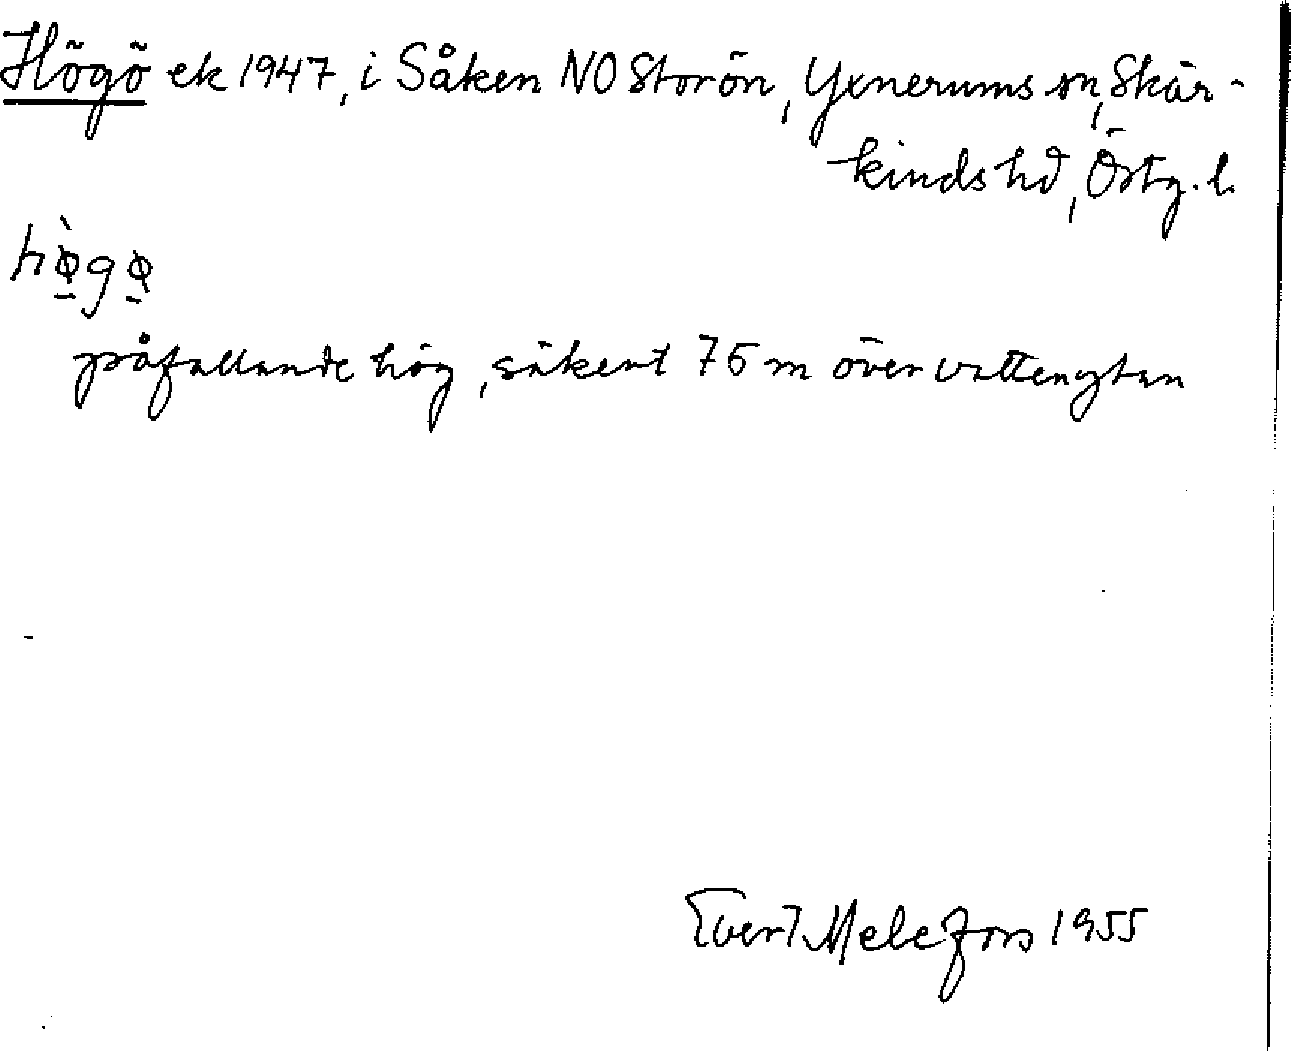 Högö ek 1947, i Såken NO Storön, Yxnerums sn, Skär-
kinds hd, Östg. l.
hø̀gø
påfallande hög, säkert 75 m över vattenytan
Evert Melefors 1955